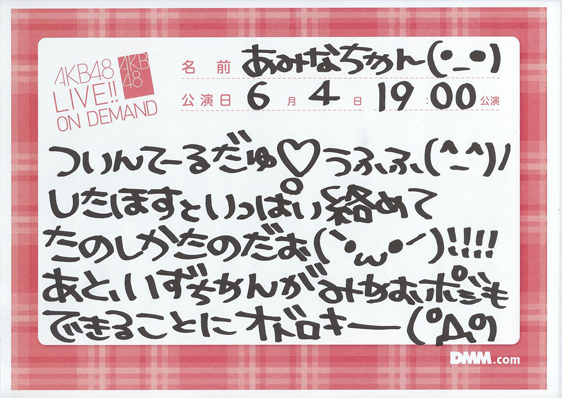 AKB48
LIVE!!
ON DEMAND
AKB
48
名前 あみなちゃん(•_•)
公演日 6月4日 19:00公演
ついんてーるだゅ♡うふふ(^_^)ノ
したほすといっぱい絡めて
たのしかたのだぉ(`•ω•´)!!!!
あと、いずちゃんがみゃおポジも
できることにオドロキー(°Д°)
DMM.com